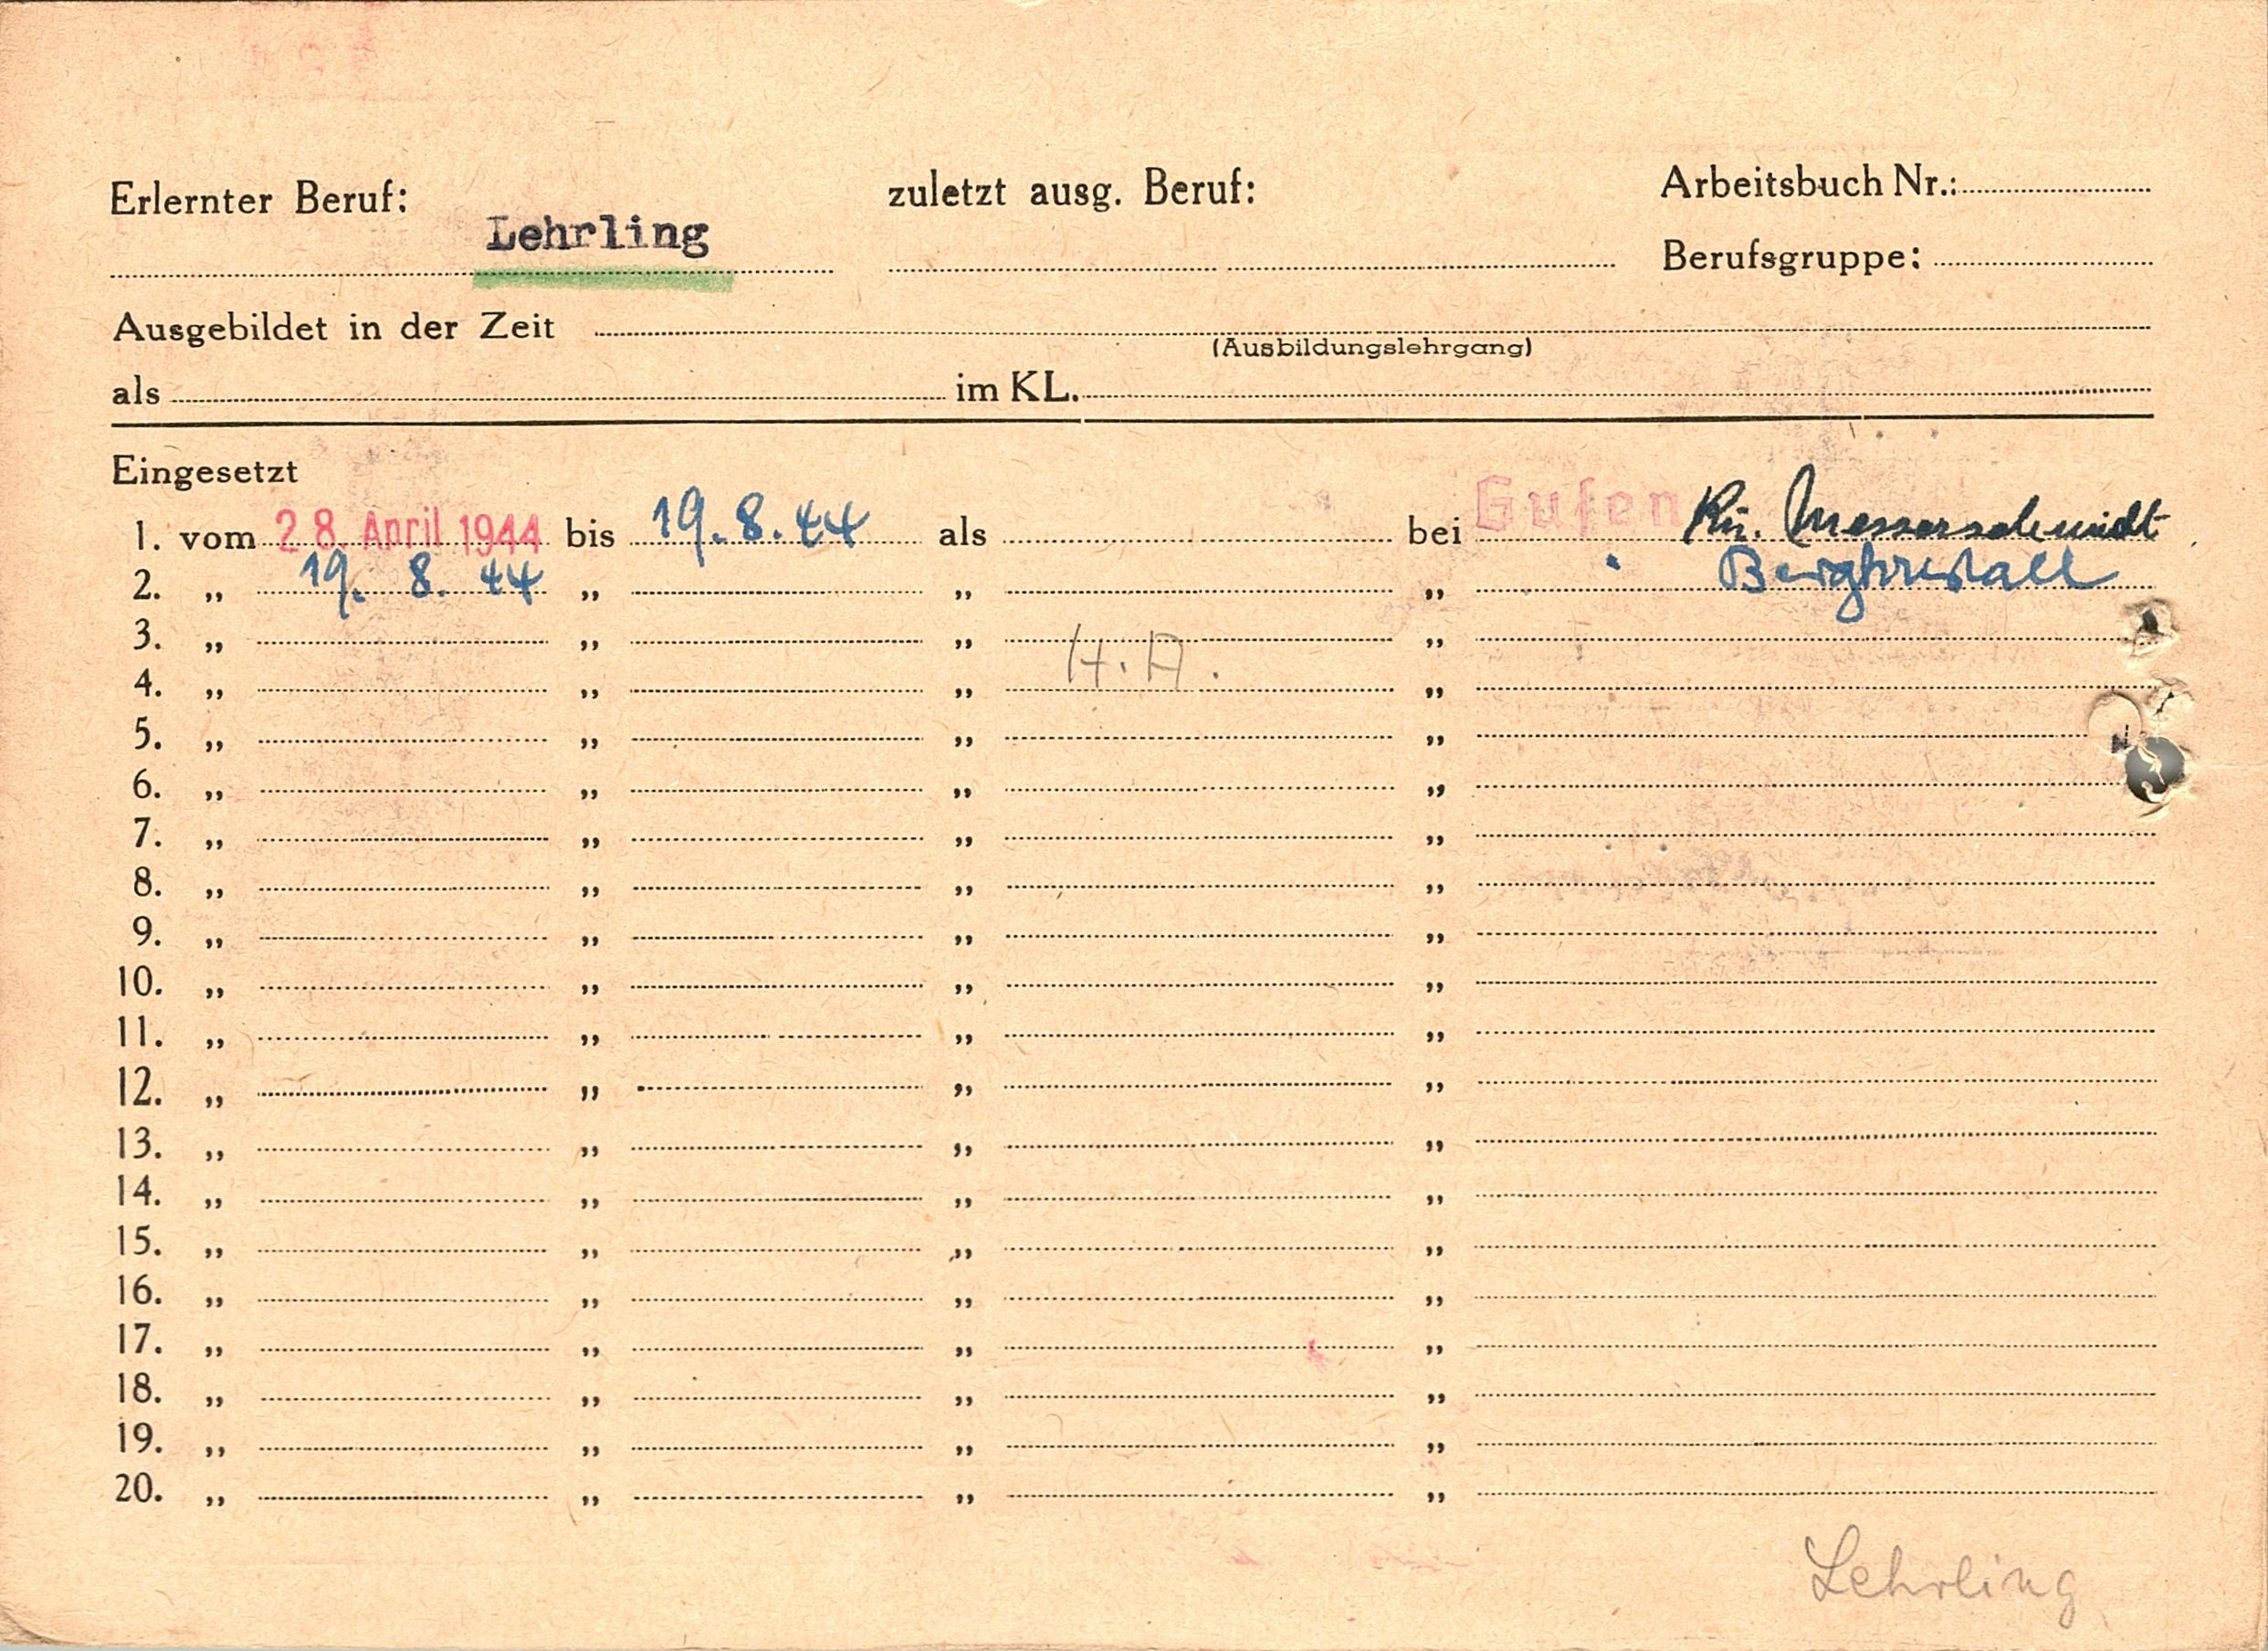 Erlernter Beruf: zuletzt ausg. Beruf: Arbeitsbuch Nr.:
Lehrling
Berufsgruppe:
Ausgebildet in der Zeit
(Ausbildungslehrgang)
als im KL.
Eingesetzt
1. vom 28. April 1944 bis 19. 8. 44 als bei Gusen Rü. Messerschmidt
2. „ 19. 8. 44 „ „ „ Bergkristall
3. „ „ „ „
H. A.
4. „ „ „ „
5. „ „ „ „
6. „ „ „ „
7. „ „ „ „
8. „ „ „ „
9. „ „ „ „
10. „ „ „ „
11. „ „ „ „
12. „ „ „ „
13. „ „ „ „
14. „ „ „ „
15. „ „ „ „
16. „ „ „ „
17. „ „ „ „
18. „ „ „ „
19. „ „ „ „
20. „ „ „ „
Lehrling